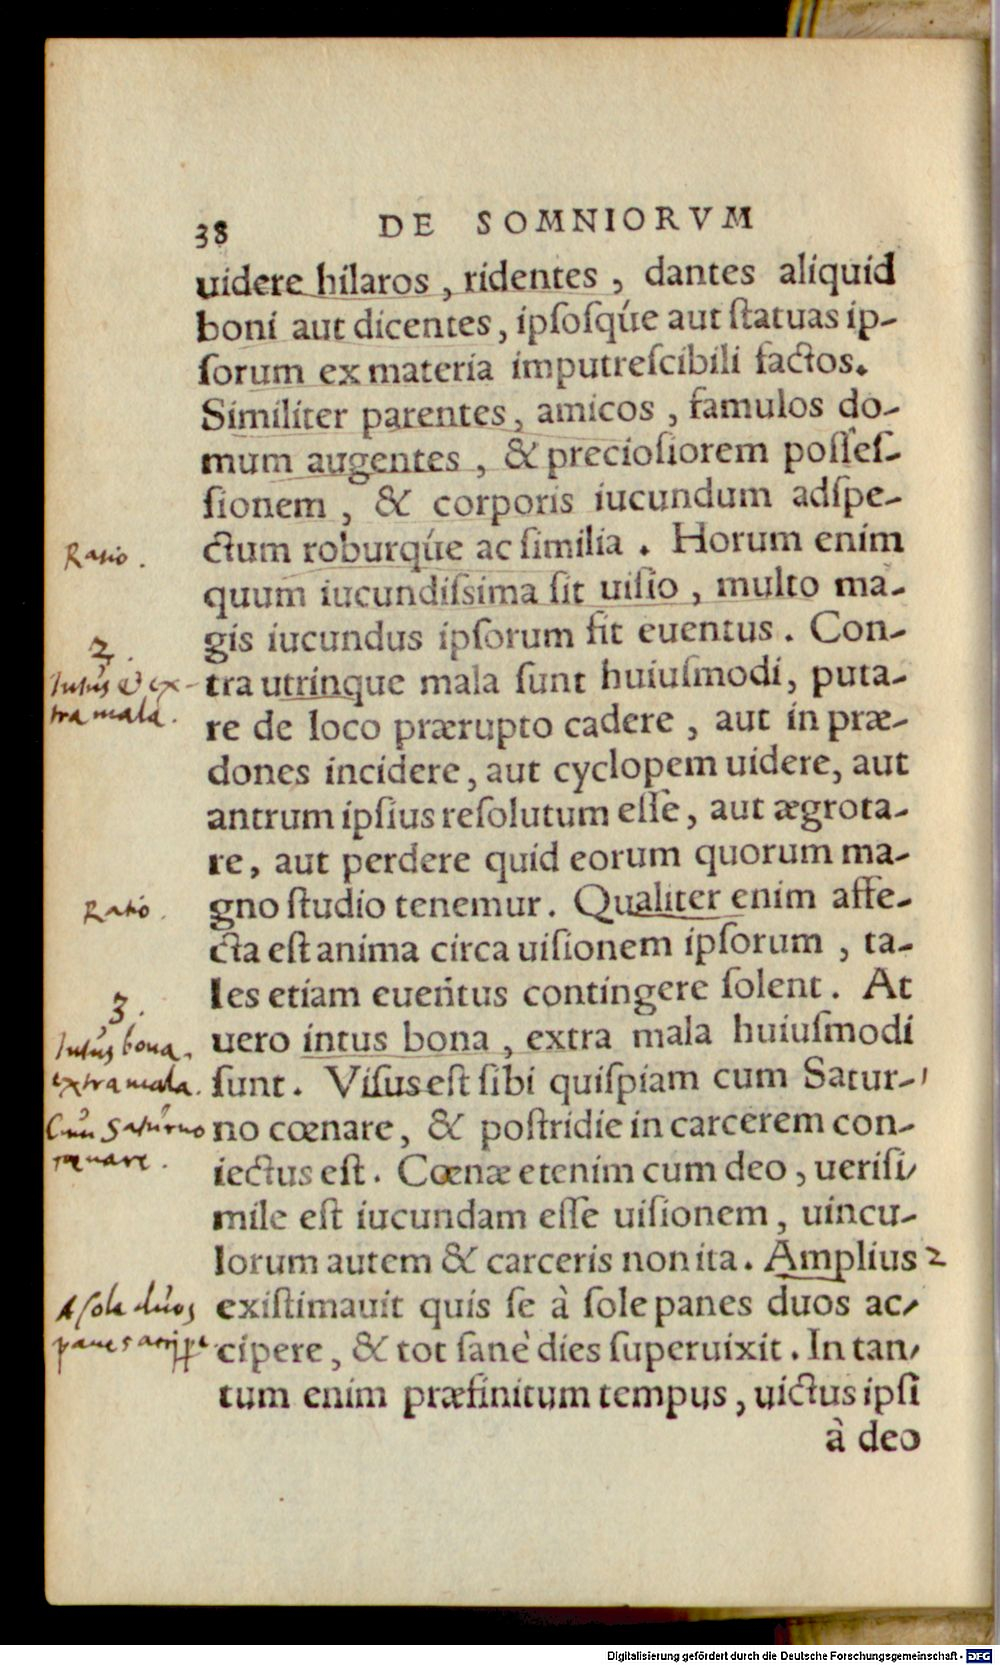 38 DE SOMNIORVM
uidere hilaros, ridentes, dantes aliquid
boni aut dicentes, ipſoſqúe aut ſtatuas ip-
ſorum ex materia imputreſcibili factos.
Similiter parentes, amicos, famulos do-
mum augentes, & precioſiorem poſſeſ-
ſionem, & corporis iucundum adſpe-
ctum roburqúe ac ſimilia. Horum enim
Ratio.
quum iucundiſsima ſit uiſio, multo ma-
gis iucundus ipſorum fit euentus. Con-
2.
Intus & ex-
tra mala.
tra utrinque mala ſunt huiuſmodi, puta-
re de loco prærupto cadere, aut in præ-
dones incidere, aut cyclopem uidere, aut
antrum ipſius reſolutum eſſe, aut ægrota-
re, aut perdere quid eorum quorum ma-
gno ſtudio tenemur. Qualiter enim affe-
Ratio.
cta eſt anima circa uiſionem ipſorum, ta-
les etiam euentus contingere ſolent. At
3.
Intus bona,
extra mala.
uero intus bona, extra mala huiuſmodi
ſunt. Viſus eſt ſibi quiſpiam cum Satur-
Cum Saturno
cœnare.
no cœnare, & poſtridie in carcerem con-
iectus eſt. Cœnæ etenim cum deo, ueriſi-
mile eſt iucundam eſſe uiſionem, uincu-
lorum autem & carceris non ita. Amplius 2
A sole duos
panes accipere
exiſtimauit quis ſe à ſole panes duos ac-
cipere, & tot ſanè dies ſuperuixit. In tan-
tum enim præfinitum tempus, uictus ipſi
à deo
Digitalisierung gefördert durch die Deutsche Forschungsgemeinschaft - DFG